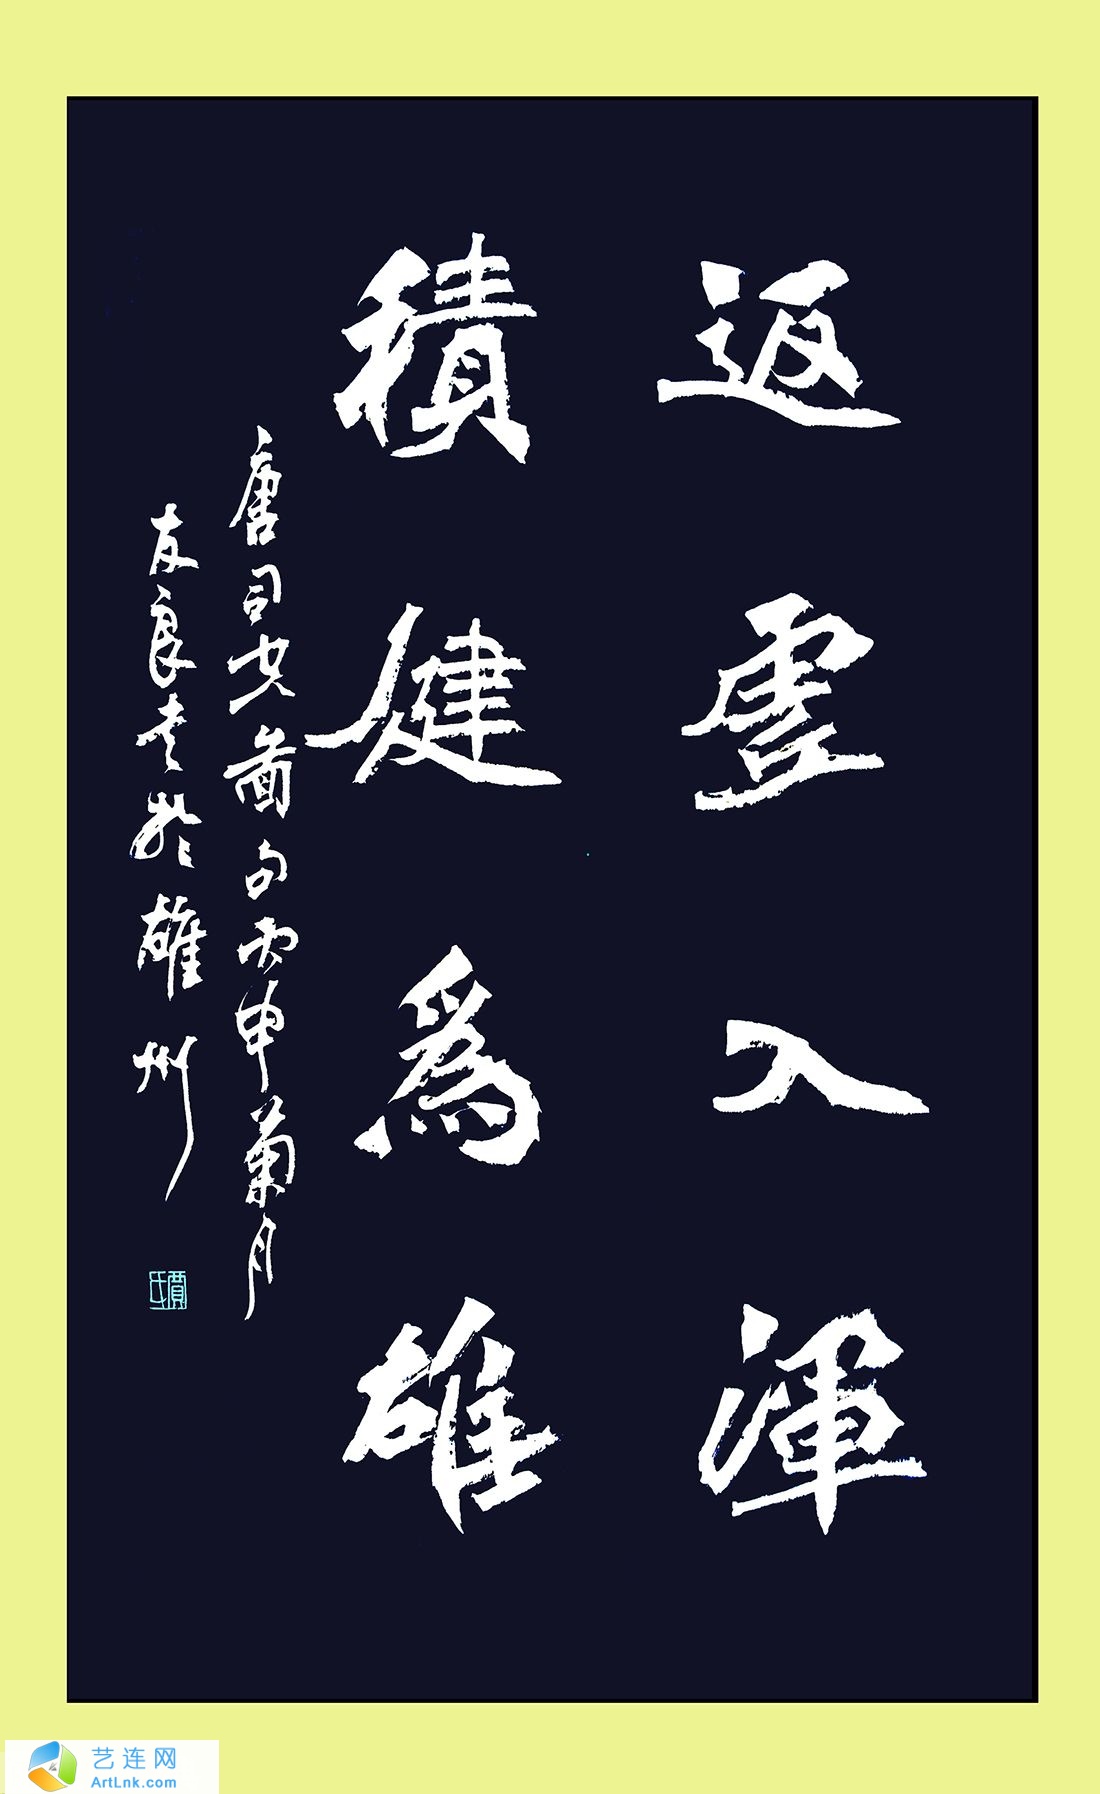 返虛入渾
積健爲雄
唐司空圖句丙申菊月
友良书於雄州
賈氏
艺连网
ArtLnk.com